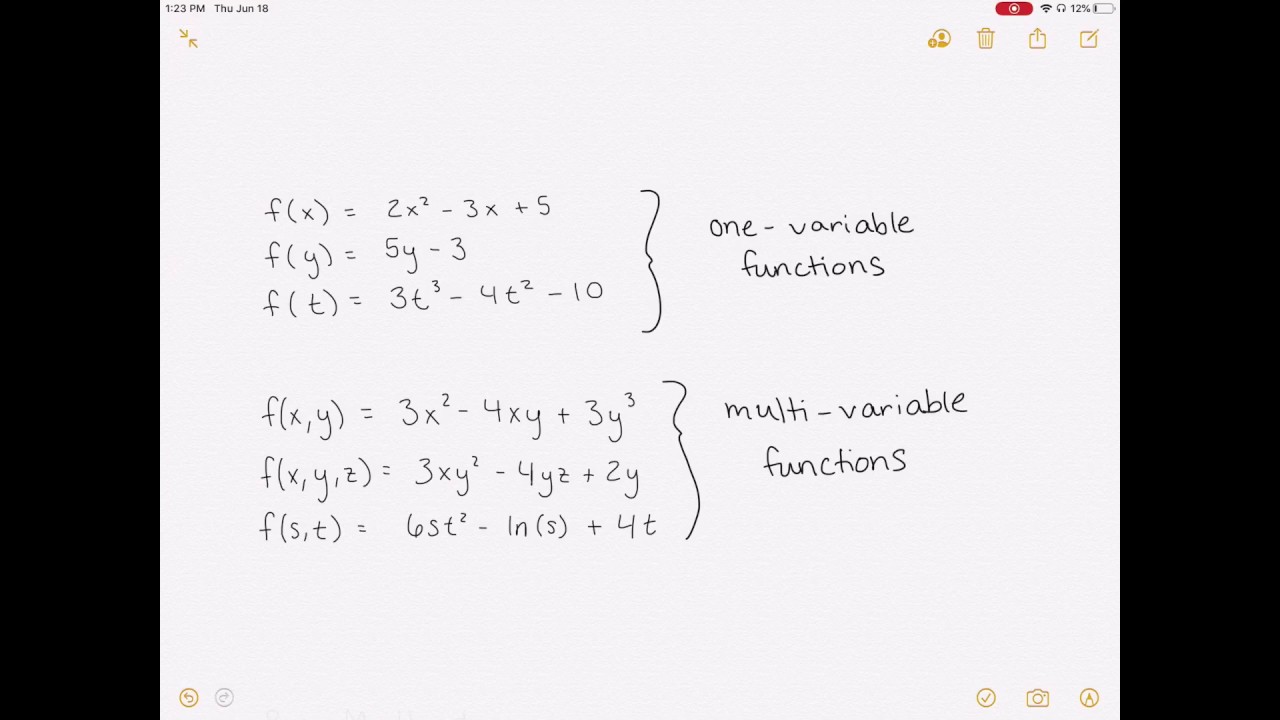 1:23 PM Thu Jun 18
12%
f(x) = 2x² - 3x + 5
f(y) = 5y - 3
f(t) = 3t³ - 4t² - 10
one-variable
functions
f(x,y) = 3x² - 4xy + 3y³
f(x,y,z) = 3xy² - 4yz + 2y
f(s,t) = 6st² - ln(s) + 4t
multi-variable
functions